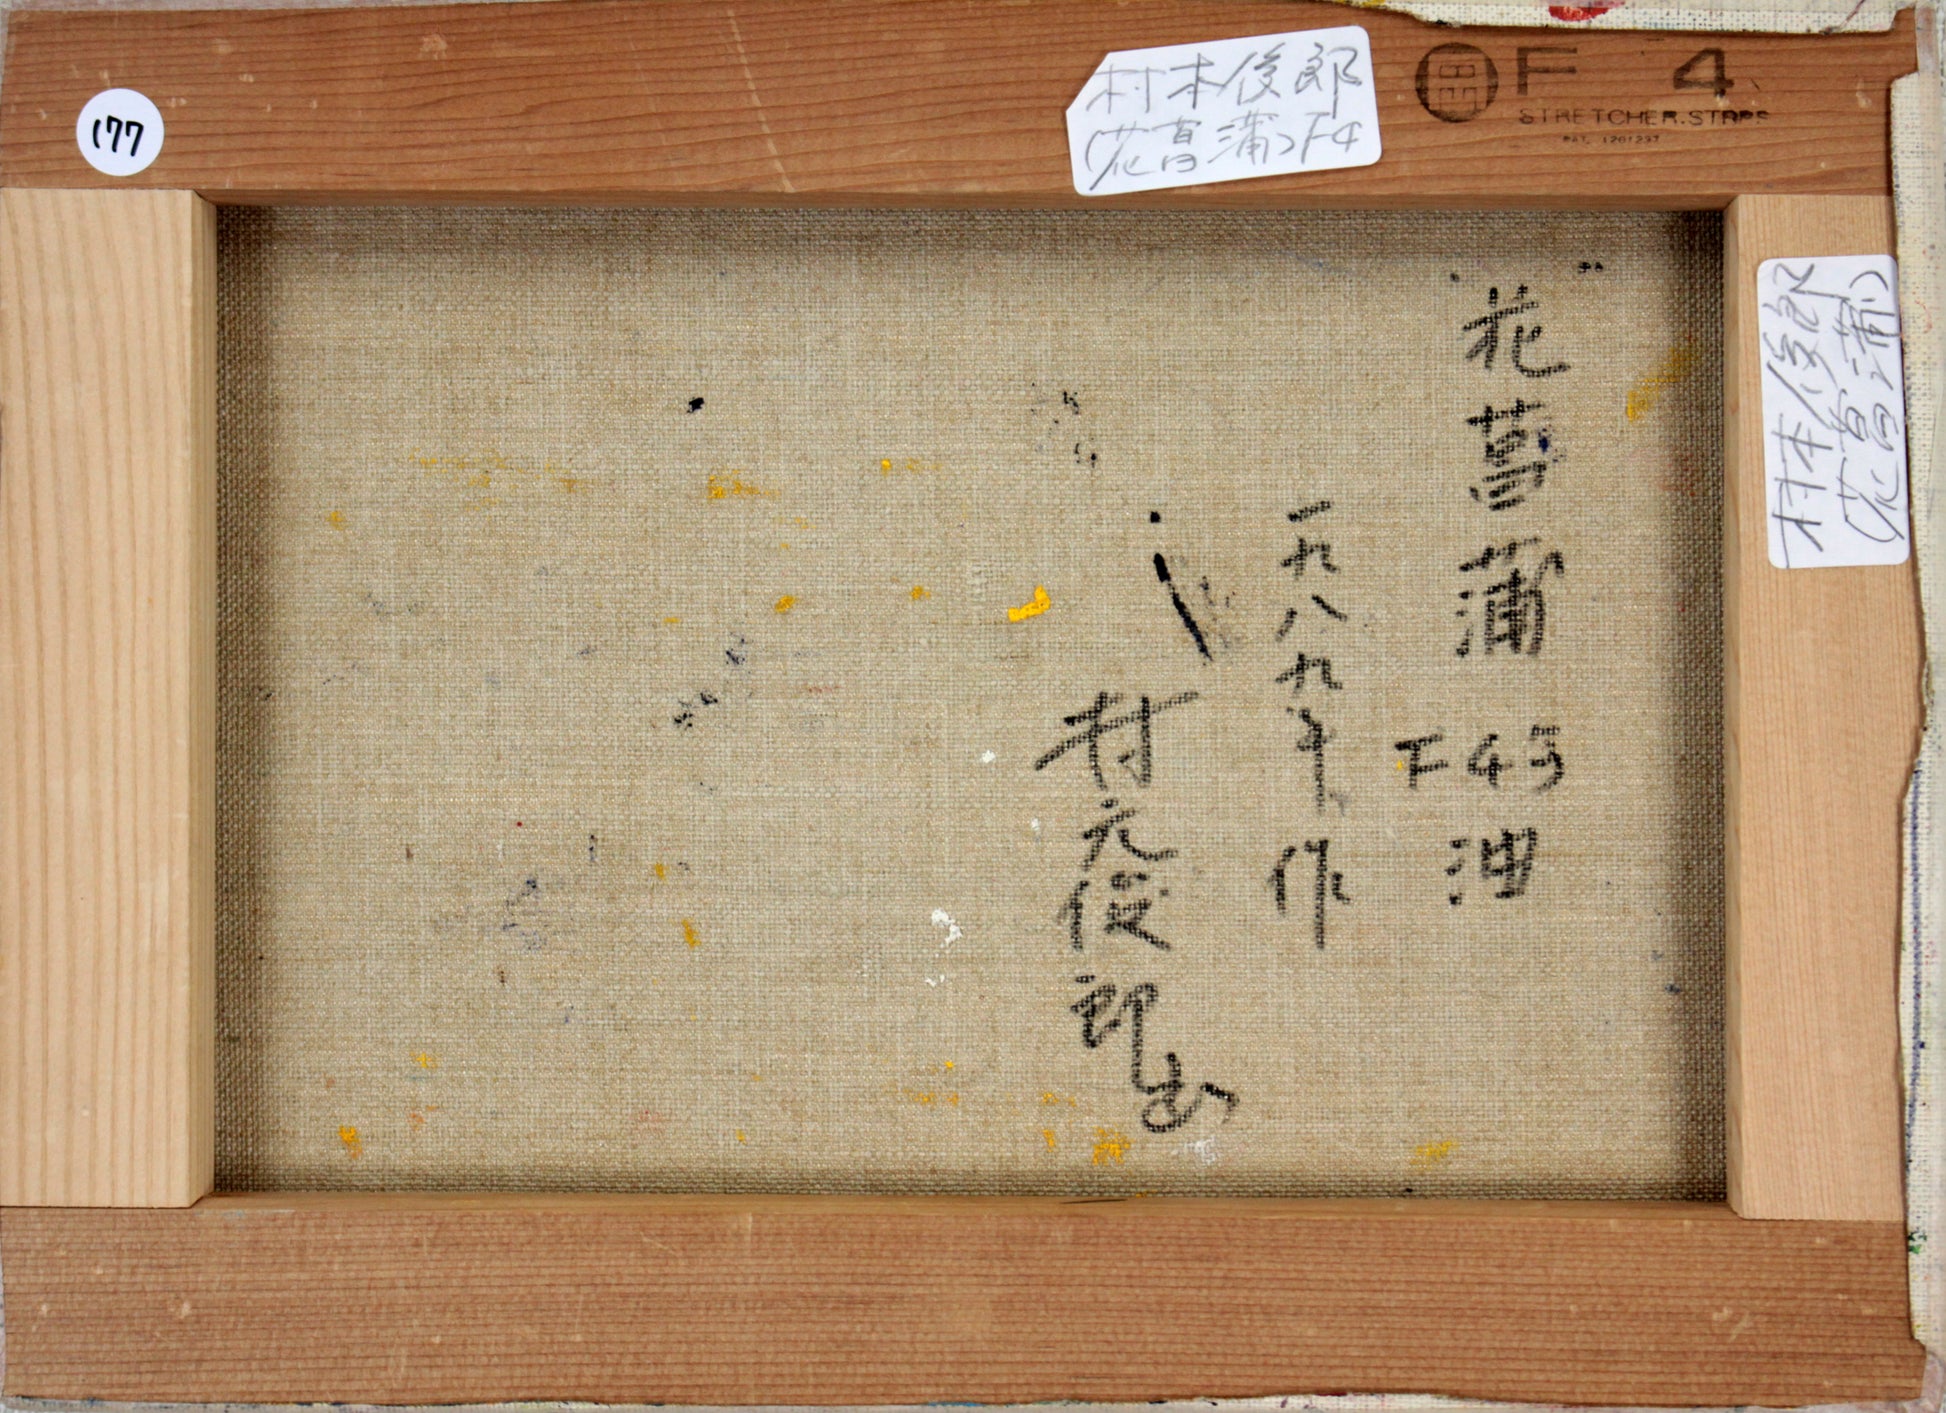 177
村本俊郎
(花菖蒲)F4
F 4
STRETCHER.STRPS
PAT. 1201237
村本俊郎
(花菖蒲)
花菖蒲
F4号
油
一九八九年作
村元俊郎